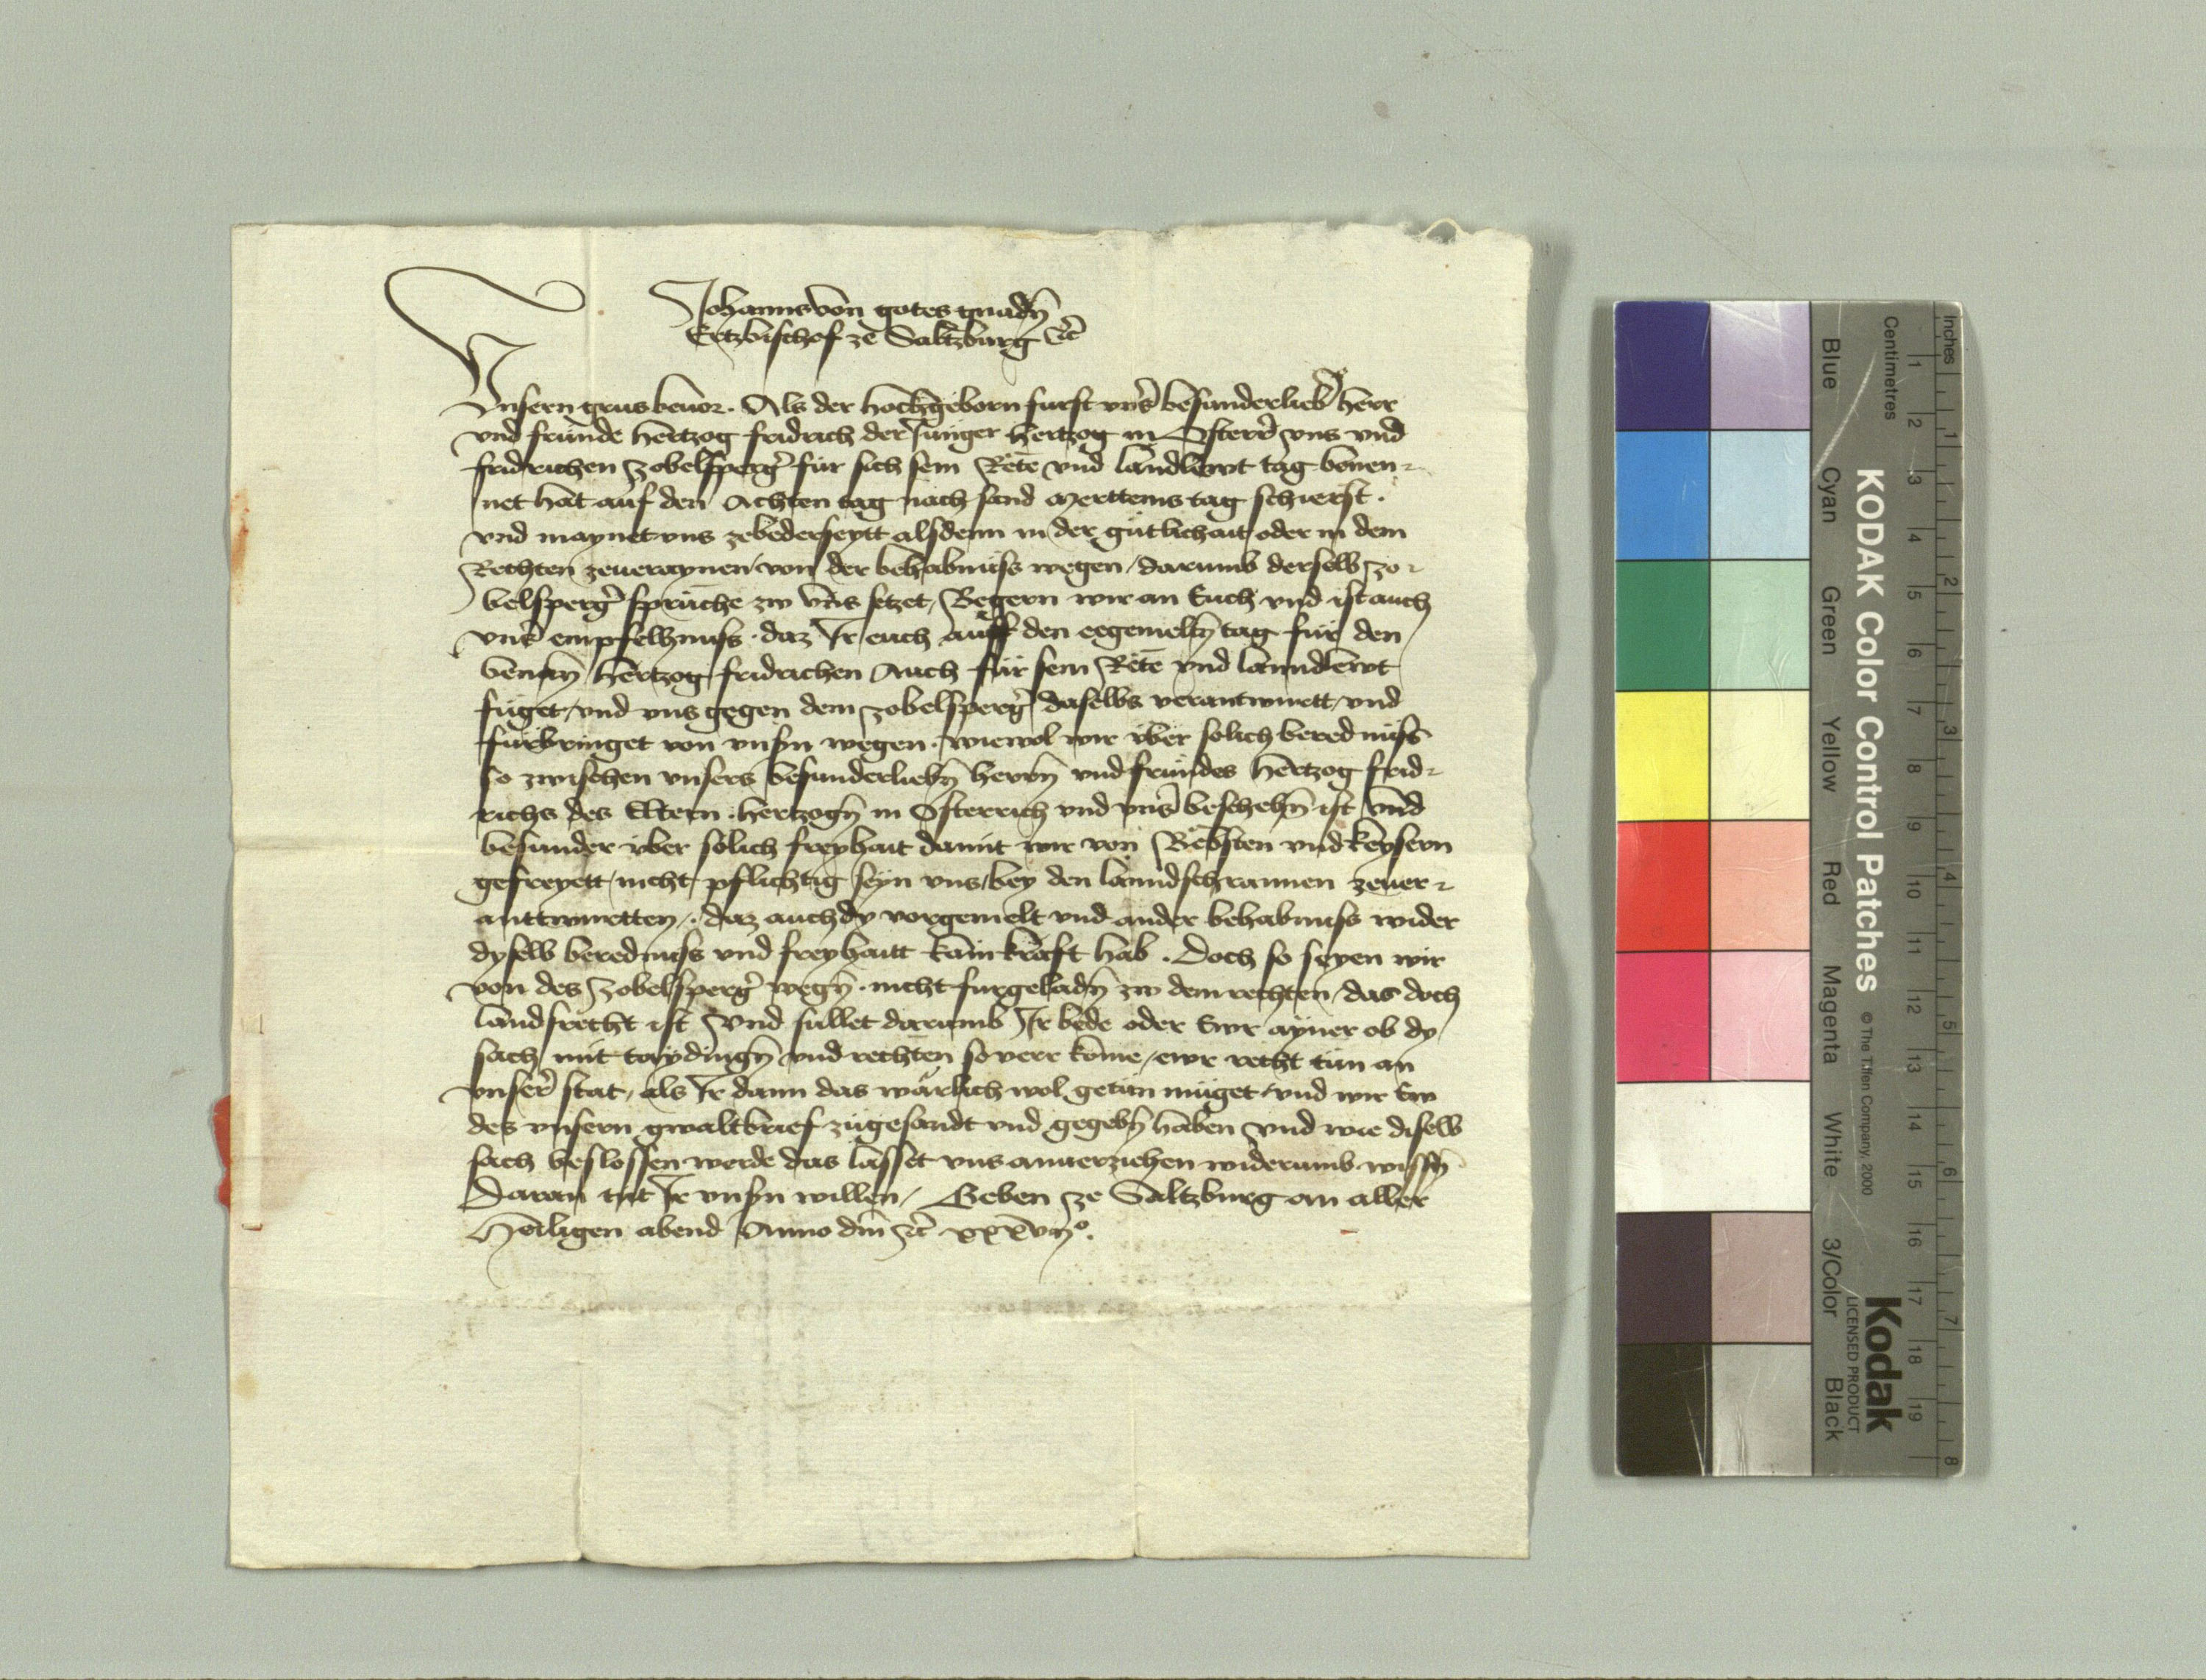 Johanns von gotes gnadn̄
Ertzbischof ze Saltzburg ꝛc̄
Vnsern grus beuor. Als der hochgeborn furst vnꝰ besunderlieb herr
vnd frunde hertzog fridrich der Junger hertzog in Osterr̄ vns vnd
fridrichen Zobelsperg̾ für sich sein Rete vnd landlewt tag benen⸗
net hat auf den Achten tag nach sand Merttems tag schierst.
vnd maynet vns zebederseytt alsdenn in der gütlichait oder in dem
Rechten zeueraynen von der behabnuss wegen / darumb derselb Zo⸗
belsperg̾ sprüche zw vns setzet / Begern wir an Euch vnd ist auch
vnꝰ empfelhnuss. daz Ir euch auff den egemeltn̄ tag für den
benan̄ hertzog fridrichen Auch für sein Rete vnd lanndlewt
füget / vnd vns gegen dem Zobelsperg̾ daselbs verantwurtt / vnd
fürbringet von vnsn̄ wegen. wiewol wir über solich berednüss
so zwischen vnsers besunderliebn̄ herrn̄ vnd frundes hertzog frid⸗
richs des Eltern. hertzogn̄ in Osterrich vnd vnꝰ beschehn̄ ist vnd
besunder über solich freyhait damit wir von Bebsten vnd keysern
gefreyett / nicht pflichtig seyn vns / bey den lanndschrannen zeuer⸗
anttwurtten /. daz auch dy vorgemelt vnd ander behabnuss wider
dyselb berednuss vnd freyhaitt kain krafft hab. Doch so seyen wir
von des Zobelsperg̾ wegn̄. nicht furgeladn̄ zw dem rechten / das doch
landsrecht ist Vnd sullet darumb Ir bede oder Ewr ayner ob dy
sach mit taydingn̄ vnd rechten so verr kome / ewr recht tün an
vnserꝰ stat / als Ir dann das wärlich wol getün müget / vnd wir Ew
des vnsern gwaltbrief zugesandt vnd gegebn̄ haben Vnd wie diselb
sach beslossen werde das lasset vns anuerziehen widerumb wissn̄
Daran tut Ir vnsn̄ willen / Geben ze Saltzburg an aller
Heiligen abend Anno dn̄i ꝛc̄ xxxvijº.
KODAK Color Control Patches
© The Tiffen Company, 2000
Kodak
LICENSED PRODUCT
Inches
Centimetres
1 2 3 4 5 6 7 8
1 2 3 4 5 6 7 8 9 10 11 12 13 14 15 16 17 18 19
Blue
Cyan
Green
Yellow
Red
Magenta
White
3/Color
Black